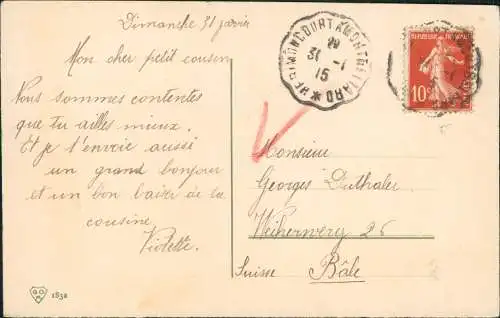 Dimanche 31 janvier
Mon cher petit cousin
Nous sommes contentes
que tu ailles mieux.
Et je t'envoie aussi
un grand bonjour
et un bon baiser de la
cousine
Violette.
HERIMONCOURT A MONTBELIARD
31 -1
15
REPUBLIQUE FRANÇAISE
10c
Monsieur
Georges Duthaler
Weiherweg 26
Suisse Bâle
1832